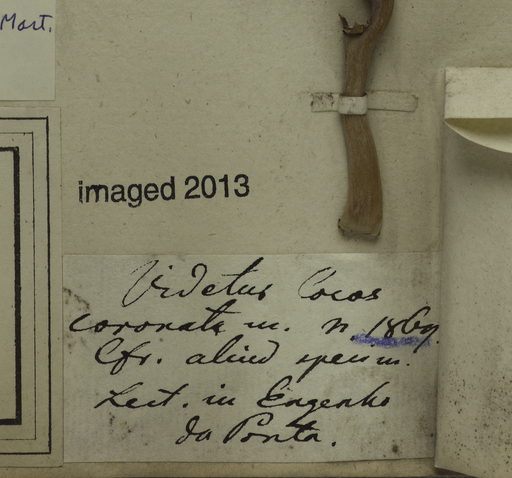 Mart.
imaged 2013
Videtur Cocos
coronata m. n. 1869.
Cfr. aliud specim.
Lect. in Engenho
da Ponta.